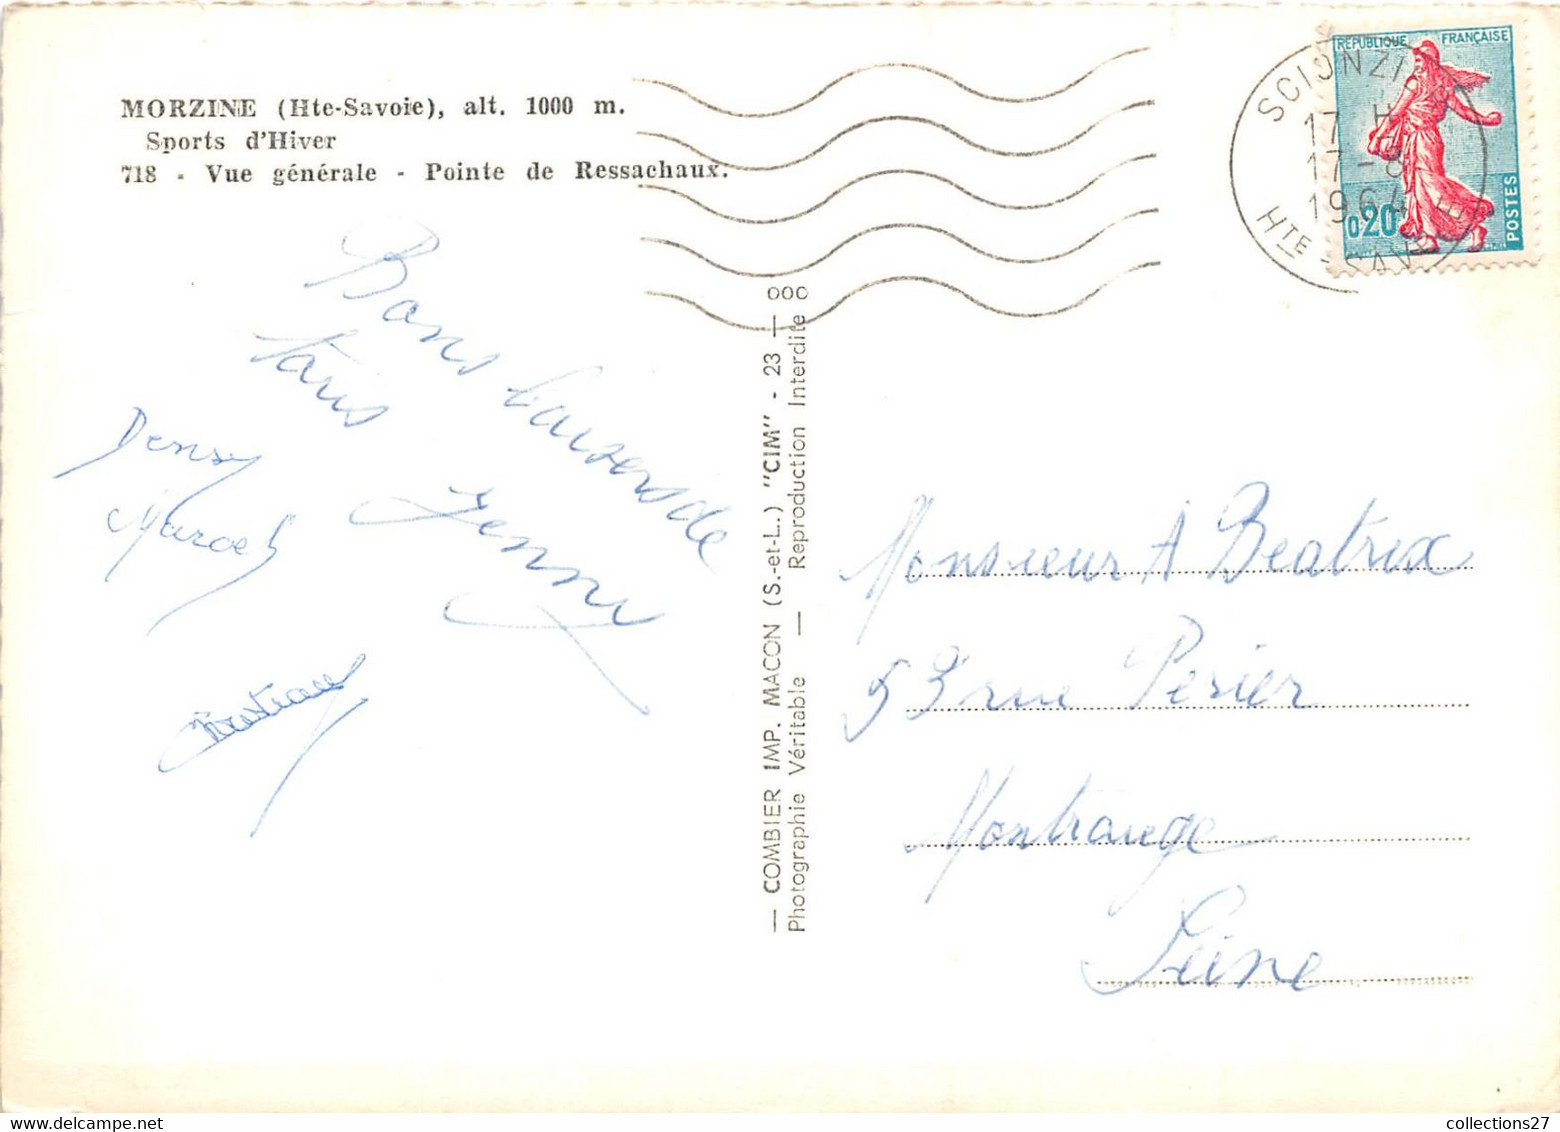 MORZINE (Hte-Savoie), alt. 1000 m.
Sports d'Hiver
718 - Vue générale - Pointe de Ressachaux.
RÉPUBLIQUE FRANÇAISE
0,20
POSTES
SCIONZIER
17 H
17-8
1964
HTE - SAVOIE
Bons baisers de
Paris
Denis
Marcel
Jenny
— COMBIER IMP. MACON (S.-et-L.) "CIM" - 23 — 000
Photographie Véritable — Reproduction Interdite
Monsieur A Beatrix
53 rue Perier
Montrouge
Seine
collections27